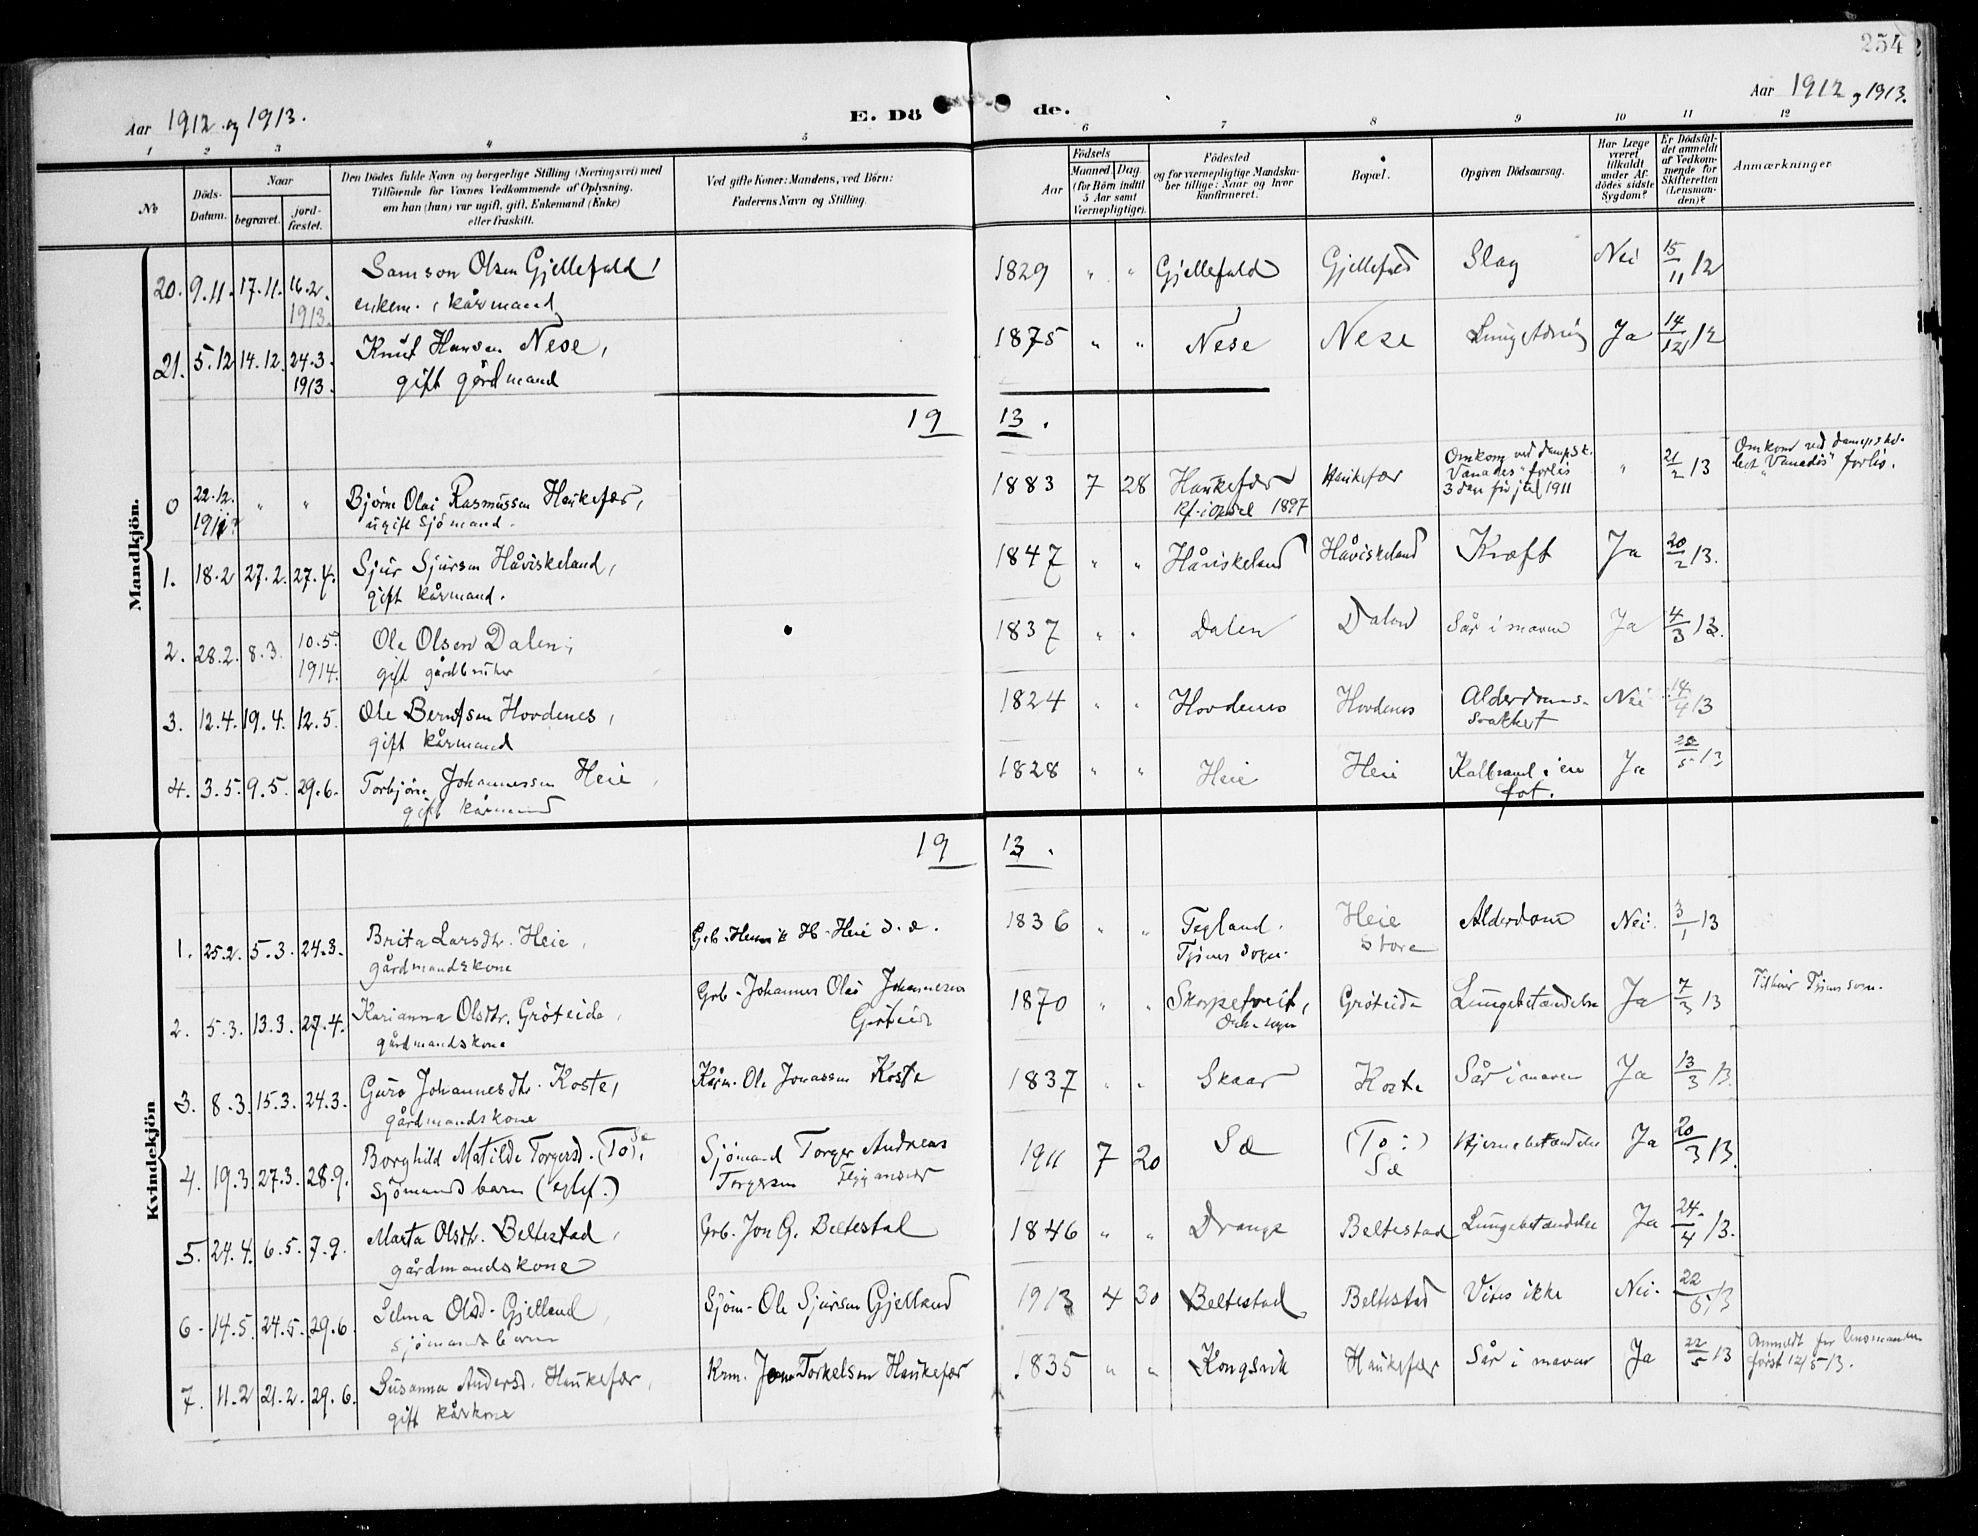 254
Aar 1912 og 1913.
E. Dö de.
Aar 1912 og 1913.
1 2 3 4 5 6 7 8 9 10 11 12
No
Döds-Datum.
Naar
begravet.
jord-fæstet.
Den Dödes fulde Navn og borgerlige Stilling (Næringsvei) med
Tilföiende for Voxnes Vedkommende af Oplysning,
om han (hun) var ugift, gift, Enkemand (Enke)
eller fraskilt.
Ved gifte Koner: Mandens, ved Börn:
Faderens Navn og Stilling.
Födsels
Aar
Maaned. Dag.
(for Börn indtil
5 Aar samt
Værnepligtige).
Födested
og for værnepligtige Mandska-
ber tillige: Naar og hvor
konfirmeret.
Bopæl.
Opgiven Dödsaarsag.
Har Læge
været
tilkaldt
under Af-
dödes sidste
Sygdom?
Er Dödsfal-
det anmeldt
af Vedkom-
mende for
Skifteretten
(Lensman-
den)?
Anmærkninger
Mandkjön.
20. 9.11. 17.11. 16.2. 1913. Samson Olsen Gjellefald,
enkem., kårmand
1829 " " Gjellefald Gjellefald Slag Nei 15/11 12
21. 5.12 14.12. 24.3. 1913. Knut Hansen Nese,
gift gårdmand
1875 " " Nese Nese Ja 14/12 12
19 13.
0 22.12. 1911 " " Bjørn Olai Rasmussen Haukefær,
ugift sjömand.
1883 7 28 Haukefær 1897 Haukefær Omkom ved dampsk.
"Vanadis" forlis
3 1911 " 21/2 13 Omkom ved dampski-
bet "Vanadis" forlis.
1. 18.2 27.2. 27.4. Sjur Sjursen Håviskeland,
gift kårmand.
1847 " " Håviskeland Håviskeland Kræft Ja 20/2 13.
2. 28.2. 8.3. 10.5. 1914. Ole Olsen Dalen,
gift gårdbruker
1837 " " Dalen Dalen Sår i maven Ja 4/3 13.
3. 12.4. 19.4. 12.5. Ole Berntsen Hovdenes,
gift kårmand
1824 " " Hovdenes Hovdenes Alderdoms-
svakhet Nei 14/4 13
4. 3.5. 9.5. 29.6. Torbjörn Johannessen Heie,
gift kårmand
1828 " " Heie Heie Kolbrand i en
fot. Ja 13
Kvindekjön
19 13.
1. 25.2. 5.3. 24.3. Brita Larsdtr. Heie,
gårdmandskone
Heie
1836 " " Tegland. Heie
Store Alderdom Nei. 3/1 13
2. 5.3. 13.3. 27.4. Karianna Olsdtr. Gröteide,
gårdmandskone
Johannes Olai Johannesen
Gröteide
1870 " " Gröteide Lungebetændelse Ja 7/3 13
3. 8.3. 15.3. 24.3. Guro Johannesdtr. Koste,
gårdmandskone
Kårm. Ole Jonassen Koste
1837 " " Skaar Koste Sår i maven Ja 13/3 13.
4. 19.3 27.3. 28.9. Borghild Matilde Torgersd. (To),
Sjömandsbarn
Sjömand Torger Andreas
Torgersen
1911 7 20 Sæ (To:)
Sæ Hjernebetændelse Ja 20/3 13.
5. 24.4. 6.5. 7.9. Marta Olsdtr. Beltestad,
gårdmandskone
Grb. Jon G. Beltestad
1846 " " Drange Beltestad Lungebetændelse Ja 24./4 13.
6. 14.5. 24.5. 29.6. Selma Olsd. Gjelland,
sjömandsbarn
Sjöm. Ole Sjursen Gjelland
1913 4 30 Beltestad Beltestad Vites ikke Nei. 22/5 13
7. 11.2 21.2. 29.6. Susanna Andersd. Haukefær,
gift kårkone
Krm. Torkelsen Haukefær
1835 " " Kongsvik Haukefær Sår i maven Ja 22/5 13 Anmeldt for lensmanden
först 12/5 13.